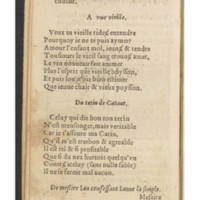 A vne vieille.
Veux tu vieille ridée entendre
Pourquoy ie ne te puis aymer?
Amour l'enfant mol, ieune & tendre
Tousiours le vieil sang trouue amer,
Le vin nouueau fait animer
Plus l'esprit que vieille boysson,
Et puis
Que ieune chair & vieux poysson.
Du tetin de Catin.
Celuy qui dit bon ton tetin
N'est mensonger, mais veritable
Car ie t'asseure ma Catin,
Qu'il m'est & agreable
Il est tel & si profitable
Que si du nez heurtoit quelqu'vn
Contre iceluy (sans nulle fable)
Il ne se feroit mal aucun.
De messire Ian confessant Ianne la simple.
Messire